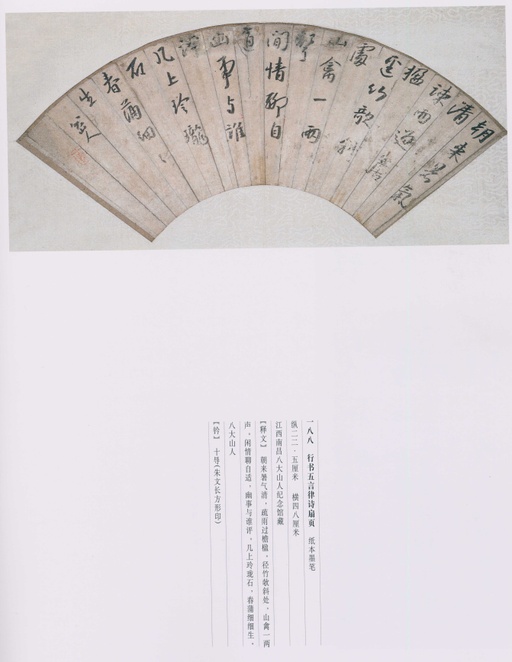 朝来暑氣
清
疎雨過簷
楹
迳竹欹斜
處
山禽一兩
聲
閒情聊自
適
幽事与誰
評
几上玲瓏
石
春蒲細
生
八大山人
一八八 行书五言律诗扇页 纸本墨笔
纵二二·五厘米 横四八厘米
江西南昌八大山人纪念馆藏
【释文】朝来暑气清，疏雨过檐楹，径竹欹斜处，山禽一两
声，闲情聊自适，幽事与谁评，几上玲珑石，春蒲细细生。
八大山人
【钤】 十(朱文长方形印)